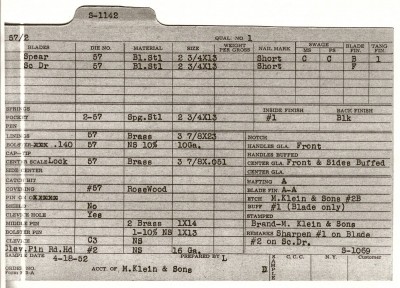 S-1142
57/2 QUAL. NO 1
BLADES DIE NO. MATERIAL SIZE WEIGHT PER GROSS NAIL MARK SWAGE MS PS BLADE FIN. TANG FIN.
Spear 57 Bl.Stl 2 3/4X13 Short C C B 1
Sc Dr 57 Bl.Stl 2 3/4X13 Short F
SPRINGS INSIDE FINISH BACK FINISH
POCKET 2-57 Spg.Stl 2 3/4X13 #1 Blk
PEN
LININGS 57 Brass 3 7/8X23 NOTCH
BOLSTER xxx .140 57 NS 10% 10Ga. HANDLES GLA. Front
CAP-TIP HANDLES BUFFED
CENTER SCALE Lock 57 Brass 3 7/8X.051 CENTER GLA. Front & Sides Buffed
SIDE CENTER CENTER GLA.
CATCH BIT WAFTING A
COVERING #57 RoseWood BLADE FIN A-A
PIN ETCH M.Klein & Sons #2B
SHIELD No BUFF #1 (Blade only)
CLEVICE HOLE Yes STAMPED
MIDDLE PIN 2 Brass 1X14 Brand-M. Klein & Sons
BOLSTER PIN 1-10% NS 1X13 REMARKS Sharpen #1 on Blade
CLEVICE 03 NS #2 on Sc.Dr.
Clev.Pin Rd.Hd #2 NS 16 Ga. S-1069
SAMPLE DATE 4-18-52 PREPARED BY L SAMPLE C.C.C. N.Y. Customer
ORDER NO. ACCT OF M.Klein & Sons B